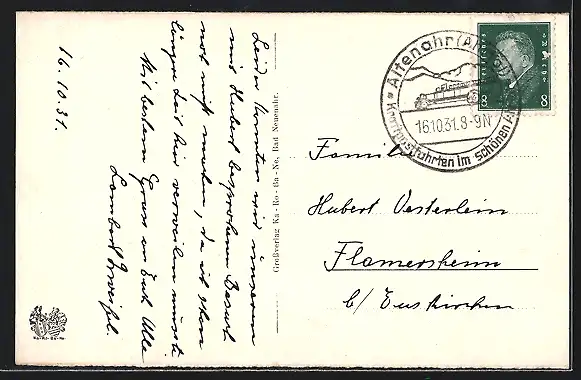 16.10.31.
Leider konnten wir unseren
mit Hubert besprochenen Besuch
noch nicht machen, da ich schon
länger Zeit hier verweilen musste
Mit besten Gruss an Euch Alle
Lambert
Großverlag Ka-Ro-Ba-Ne, Bad Neuenahr.
Ka-Ro-Ba-Ne
Altenahr (Ahrtal)
16.10.31.8-9N
Kraftpostfahrten im schönen Ahrtal
Deutsches Reich
8 8
Familie
Hubert Oesterlein
Flamersheim
b/ Euskirchen